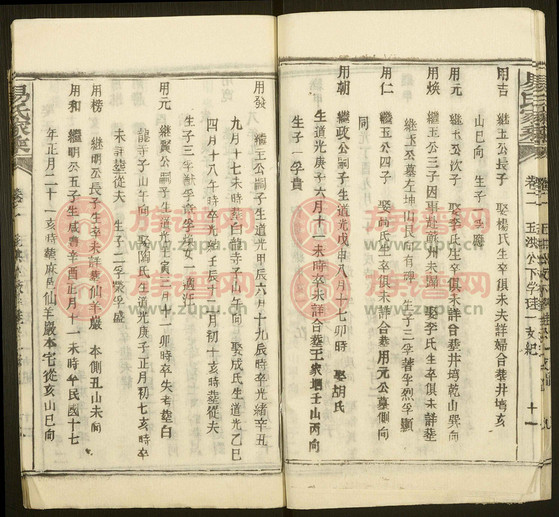 易氏家乘
卷二 玉洪公下孚珪一支紀 十一
用吉 繼玉公長子 娶楊氏生卒俱未詳婦合葬井塆
山巳向 生子一孚
用元 繼玉公次子 娶李氏生卒俱未詳合葬井塆乾山巽向
用煥 繼玉公三子因 州未歸 娶李氏生卒俱未詳葬
繼玉公墓左坤山艮 有碑 生子三孚著孚烈孚顯
用仁 繼玉公四子 娶 氏生卒俱未詳合葬用元公墓側向
同
用朝 繼政公嗣子生道光戊申八月十七卯時 娶胡氏
生道光庚子六月十一未時卒未詳合葬王家 壬山丙向
生子一孚貴
用發 繼玉公嗣子生道光甲辰六月十九辰時卒光緒辛丑
九月十七未時葬白龍寺子山午向 娶成氏生道光乙巳
四月十八午時卒光緒壬辰十月初十亥時葬從夫
生子三孚 孚 孚 女一適汪
用元 繼翼公嗣子生道光壬寅三月十一卯時卒失考葬白
龍寺子山午向 娶陶氏生道光庚子正月初七亥時卒
未詳葬從夫 生子二孚榮孚盛
用榜 繼明公長子生卒未詳葬仙羊巖 本側丑山未向
用和 繼明公五子生咸豐辛酉正月十一未時卒民國十七
年正月二十一亥時葬麻 仙羊巖本宅從亥山巳向
易氏家乘
卷二
房譜网
www.zupu.cn